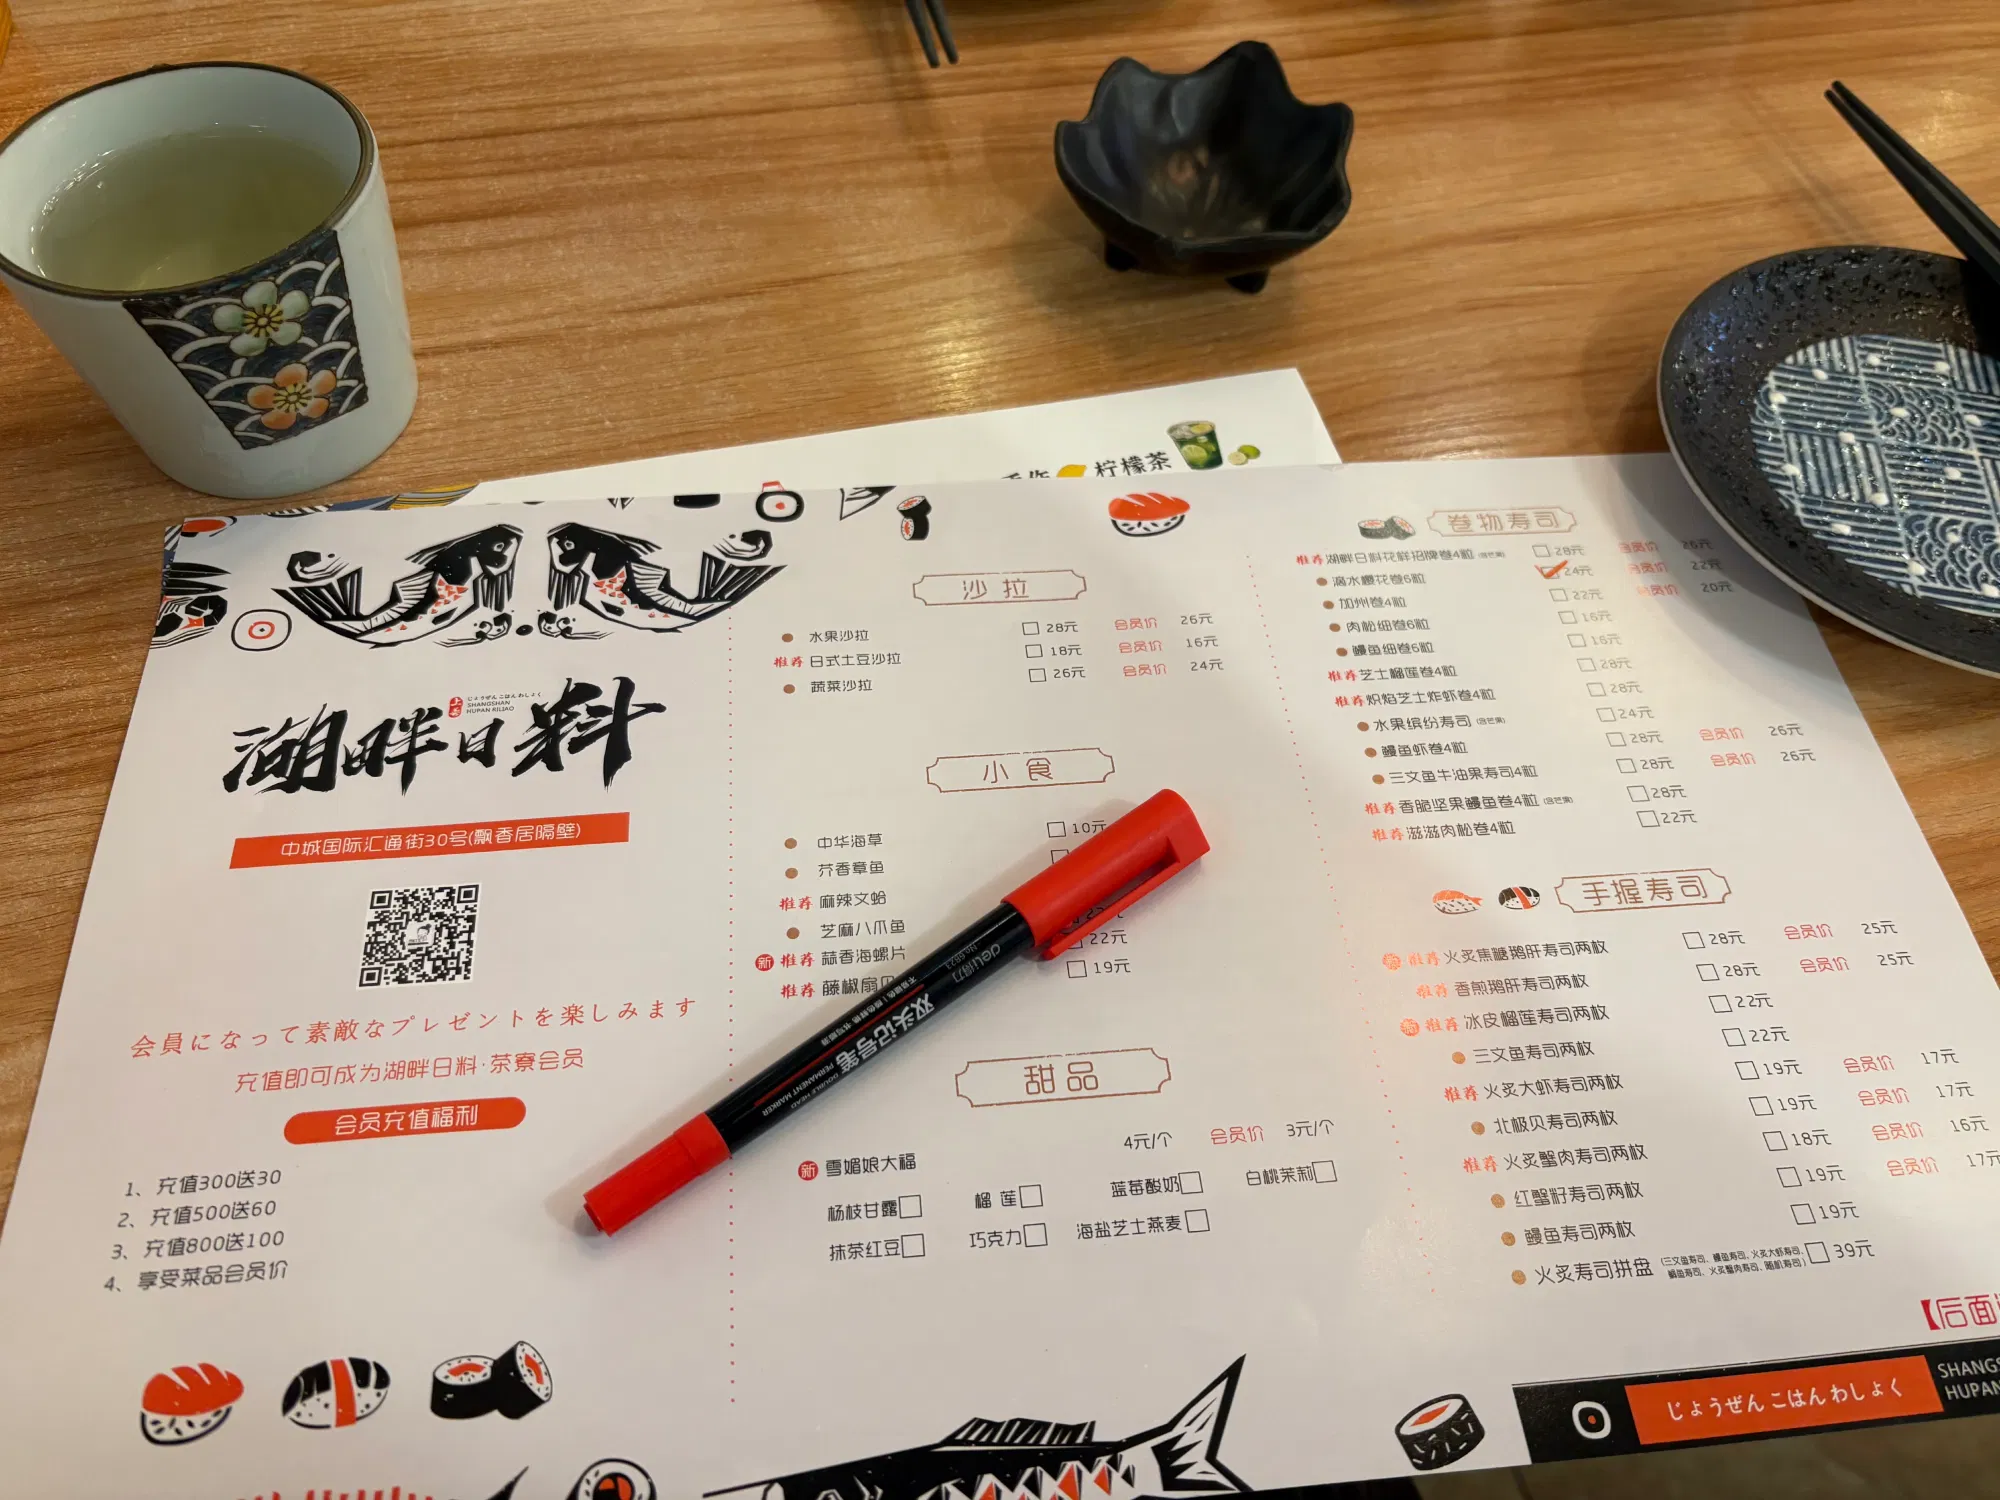 柠檬茶
上善
じょうぜんこはんわしょく
SHANGSHAN
HUPAN RILIAO
湖畔日料
中城国际汇通街30号(飘香居隔壁)
会員になって素敵なプレゼントを楽しみます
充值即可成为湖畔日料·茶寮会员
会员充值福利
1、充值300送30
2、充值500送60
3、充值800送100
4、享受菜品会员价
沙拉
水果沙拉 28元 会员价 26元
推荐 日式土豆沙拉 18元 会员价 16元
蔬菜沙拉 26元 会员价 24元
小食
中华海草 10元
芥香章鱼
推荐 麻辣文蛤
芝麻八爪鱼
新 推荐 蒜香海螺片 22元
推荐 藤椒扇贝 19元
甜品
4元/个 会员价 3元/个
新 雪媚娘大福
杨枝甘露 榴莲 蓝莓酸奶 白桃茉莉
抹茶红豆 巧克力 海盐芝士燕麦
卷物寿司
推荐 湖畔日料花样招牌卷4粒 (含芒果) 28元 会员价 26元
滴水樱花卷6粒 24元 会员价 22元
加州卷4粒 22元 会员价 20元
肉松细卷6粒 16元
鳗鱼细卷6粒 16元
推荐 芝士榴莲卷4粒 28元
推荐 炽焰芝士炸虾卷4粒 28元
水果缤纷寿司 (含芒果) 24元
鳗鱼虾卷4粒 28元 会员价 26元
三文鱼牛油果寿司4粒 28元 会员价 26元
推荐 香脆坚果鳗鱼卷4粒 (含芒果) 28元
推荐 滋滋肉松卷4粒 22元
手握寿司
新 推荐 火炙焦糖鹅肝寿司两枚 28元 会员价 25元
推荐 香煎鹅肝寿司两枚 28元 会员价 25元
新 推荐 冰皮榴莲寿司两枚 22元
三文鱼寿司两枚 22元
推荐 火炙大虾寿司两枚 19元 会员价 17元
北极贝寿司两枚 19元 会员价 17元
推荐 火炙蟹肉寿司两枚 18元 会员价 16元
红蟹籽寿司两枚 19元 会员价 17元
鳗鱼寿司两枚 19元
火炙寿司拼盘 (三文鱼寿司、鳗鱼寿司、火炙大虾寿司、 39元
鲷鱼寿司、火炙蟹肉寿司、随机寿司)
【后面
じょうぜんこはんわしょく
SHANGS
HUPAN
deli得力
No.6823
双头记号笔
DOUBLE HEAD
PERMANENT MARKER